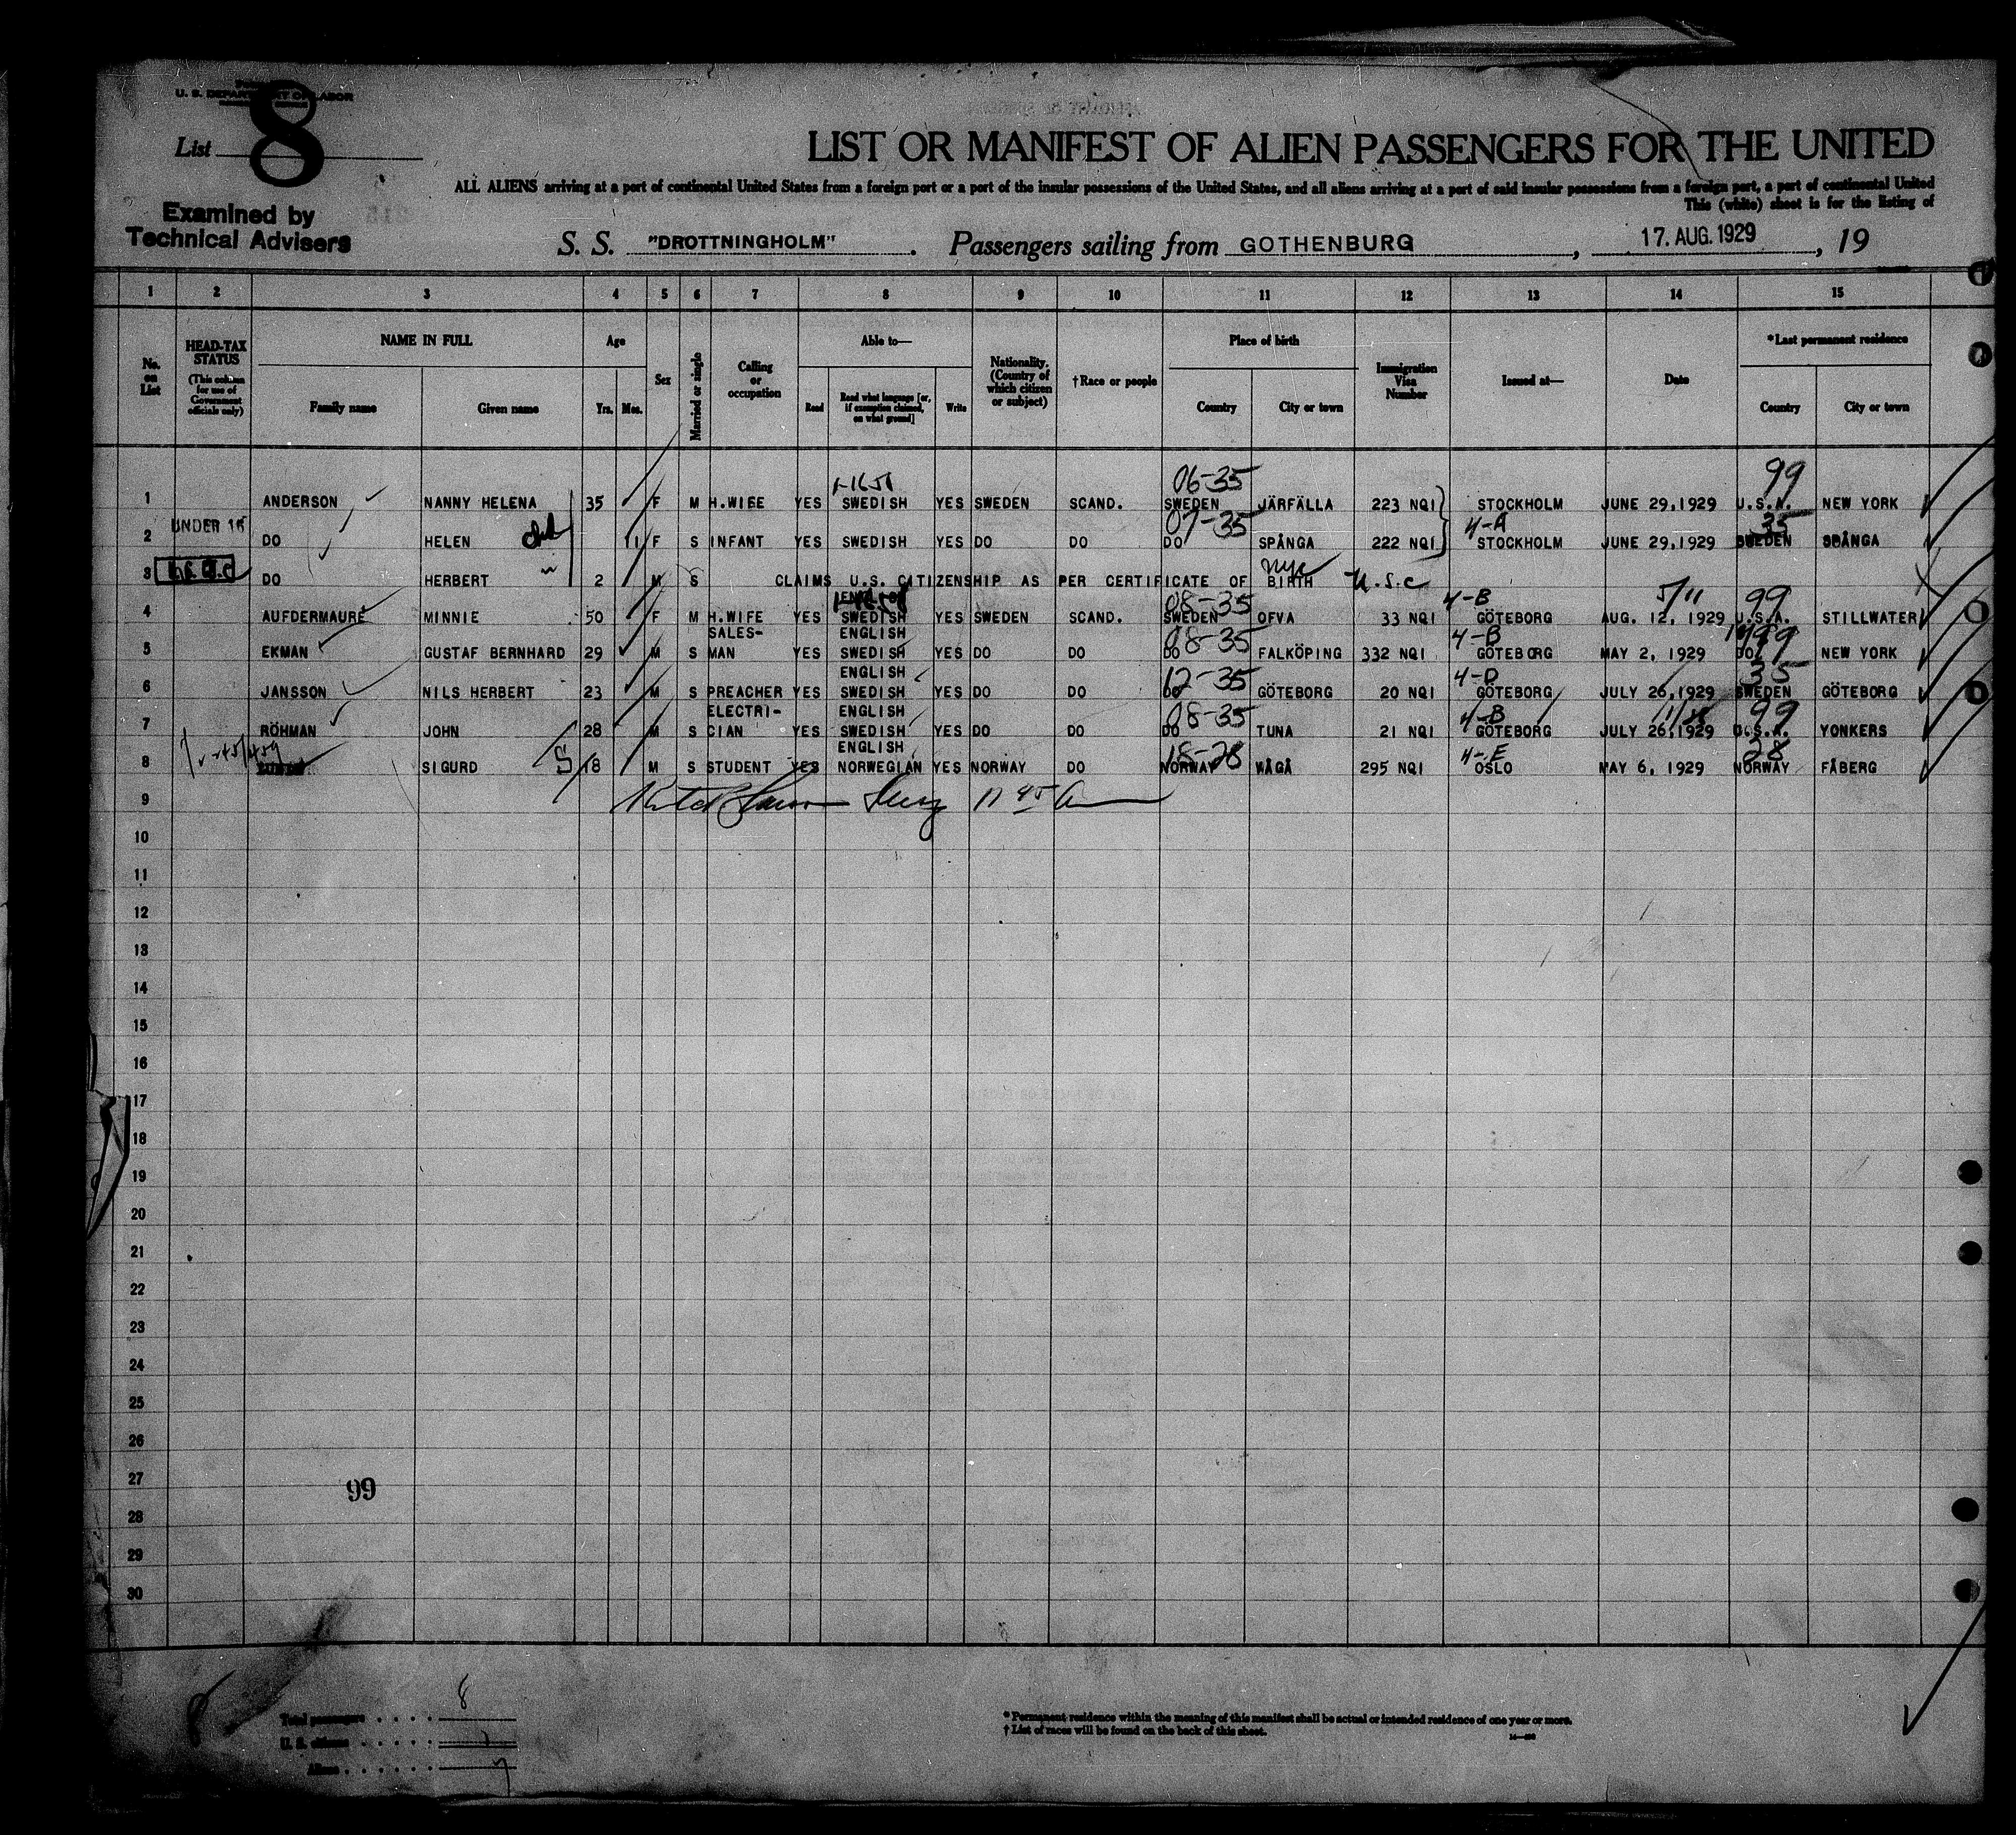 U. S. DEPARTMENT OF LABOR
List 8
LIST OR MANIFEST OF ALIEN PASSENGERS FOR THE UNITED
ALL ALIENS arriving at a port of continental United States from a foreign port or a port of the insular possessions of the United States, and all aliens arriving at a port of said insular possessions from a foreign port, a port of continental United
This (white) sheet is for the listing of
Examined by
Technical Advisers
S. S. "DROTTNINGHOLM". Passengers sailing from GOTHENBURG, 17. AUG. 1929, 19
1 2 3 4 5 6 7 8 9 10 11 12 13 14 15
No. on List
HEAD-TAX STATUS (This column for use of Government officials only)
NAME IN FULL Family name Given name
Age Yrs. Mos.
Sex
Married or single
Calling or occupation
Able to— Read Read what language [or, if exemption claimed, on what ground] Write
Nationality. (Country of which citizen or subject)
†Race or people
Place of birth Country City or town
Immigration Visa Number
Issued at—
Date
*Last permanent residence Country City or town
06-35 99
1 ANDERSON NANNY HELENA 35 F M H.WIFE YES SWEDISH YES SWEDEN SCAND. SWEDEN JÄRFÄLLA 223 NQI STOCKHOLM JUNE 29,1929 U.S.A. NEW YORK
UNDER 16 07-35 4-A 35
2 DO HELEN 11 F S INFANT YES SWEDISH YES DO DO DO SPÅNGA 222 NQI STOCKHOLM JUNE 29,1929 SWEDEN SPÅNGA
nyc
3 DO HERBERT 2 M S CLAIMS U.S. CITIZENSHIP AS PER CERTIFICATE OF BIRTH U.S.C
08-35 4-B 5/11 99
4 AUFDERMAURE MINNIE 50 F M H.WIFE YES SWEDISH YES SWEDEN SCAND. SWEDEN OFVA 33 NQI GÖTEBORG AUG. 12, 1929 U.S.A. STILLWATER
SALES- ENGLISH 08-35 4-B 99
5 EKMAN GUSTAF BERNHARD 29 M S MAN YES SWEDISH YES DO DO DO FALKÖPING 332 NQI GÖTEBORG MAY 2, 1929 DO NEW YORK
ENGLISH 12-35 4-D 35
6 JANSSON NILS HERBERT 23 M S PREACHER YES SWEDISH YES DO DO DO GÖTEBORG 20 NQI GÖTEBORG JULY 26,1929 SWEDEN GÖTEBORG
ELECTRI- ENGLISH 08-35 4-B 99
7 RÖHMAN JOHN 28 M S CIAN YES SWEDISH YES DO DO DO TUNA 21 NQI GÖTEBORG JULY 26,1929 U.S.A. YONKERS
ENGLISH 18-28 4-E 28
8 SIGURD S 18 M S STUDENT YES NORWEGIAN YES NORWAY DO NORWAY VÅGÅ 295 NQI OSLO MAY 6, 1929 NORWAY FÅBERG
9
10
11
12
13
14
15
16
17
18
19
20
21
22
23
24
25
26
27
99
28
29
30
Total passengers 8
U. S. citizens 1
Aliens 7
* Permanent residence within the meaning of this manifest shall be actual or intended residence of one year or more.
† List of races will be found on the back of this sheet.